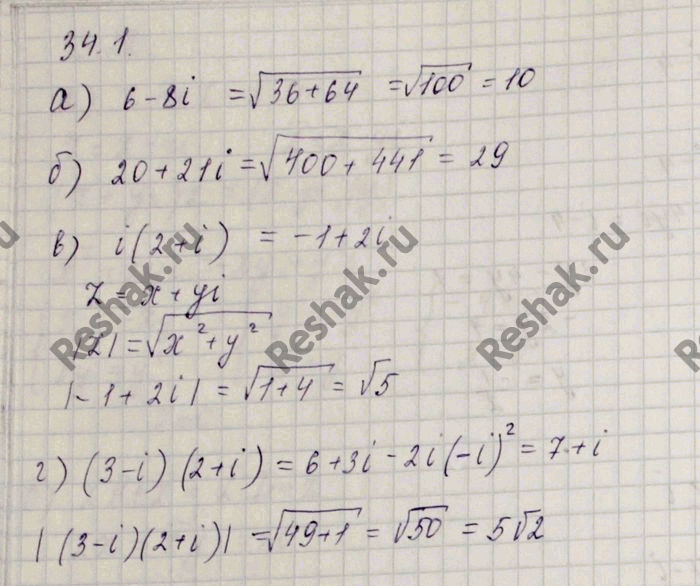 34.1.
а) 6-8i = √36+64 = √100 = 10
б) 20+21i = √400+441 = 29
в) i(2+i) = -1+2i
z = x+yi
|z| = √x²+y²
|-1+2i| = √1+4 = √5
г) (3-i)(2+i) = 6+3i-2i(-i)² = 7+i
|(3-i)(2+i)| = √49+1 = √50 = 5√2
Reshak.ru
Reshak.ru
Reshak.ru
Reshak.ru